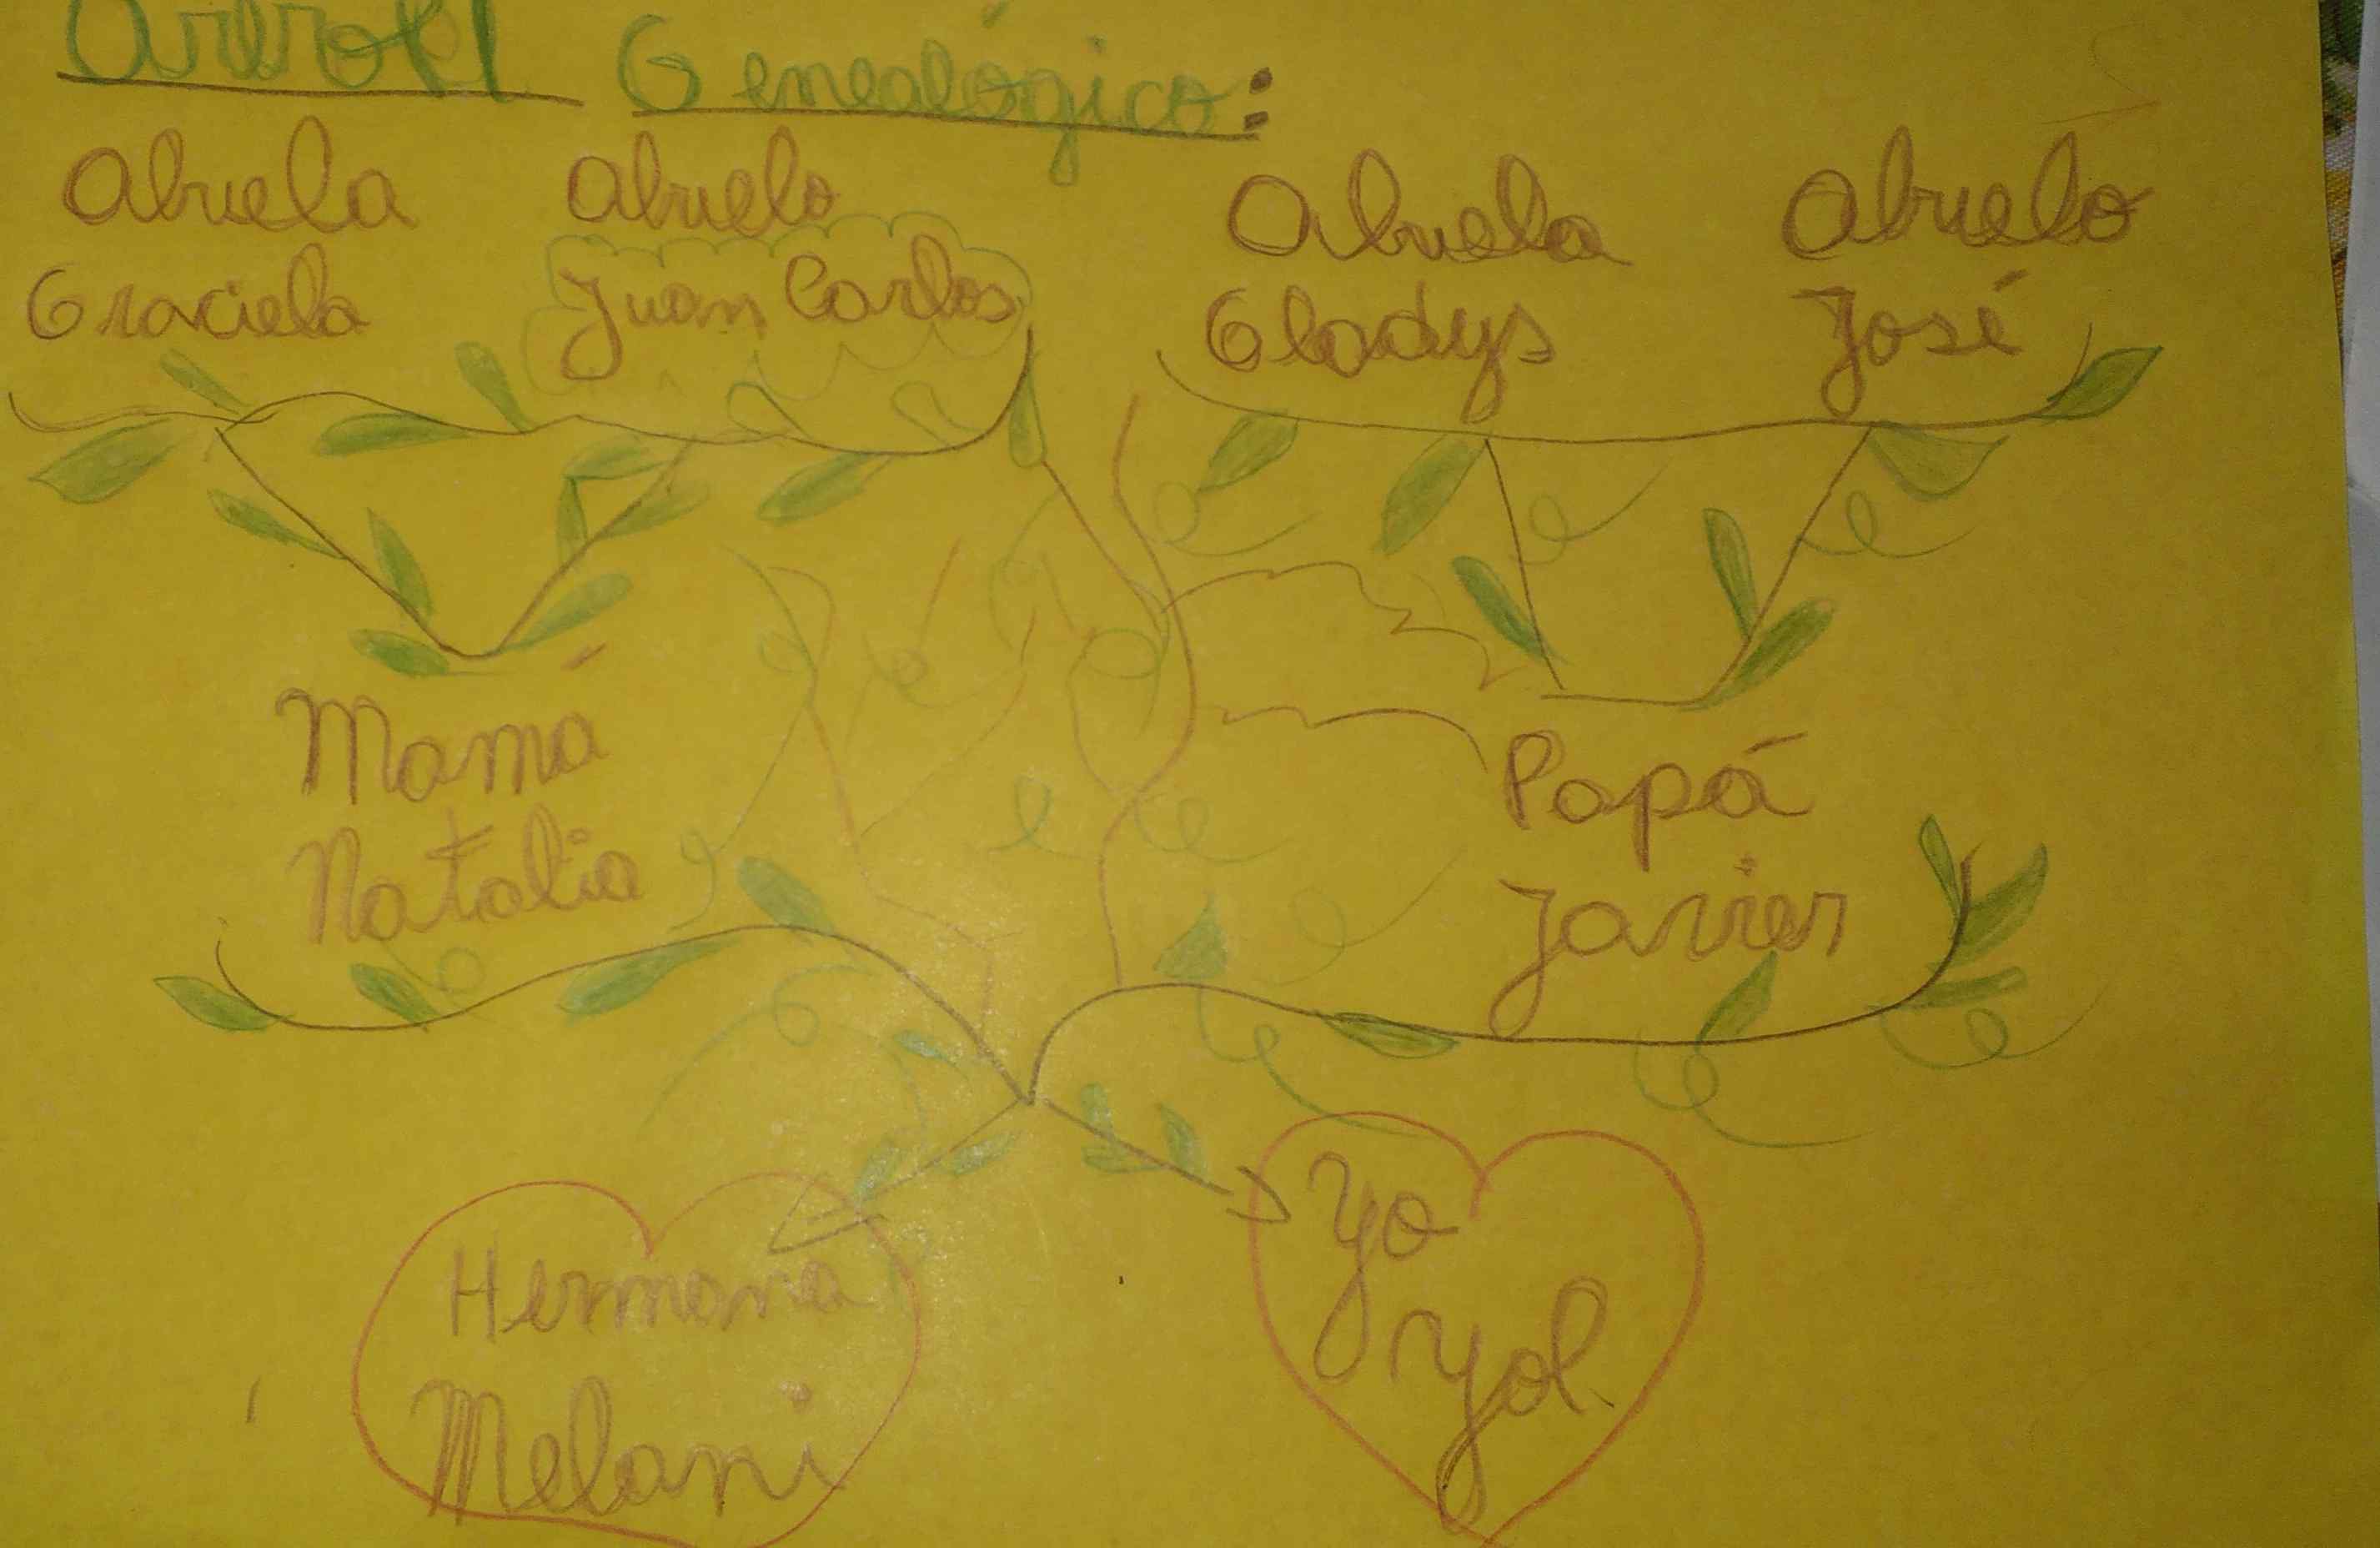 Genealógico:
Abuela
Graciela
Abuelo
Juan Carlos
Abuela
Gladys
Abuelo
José
Mamá
Natalia
Papá
Javier
Hermana
Melani
Yo
Yol